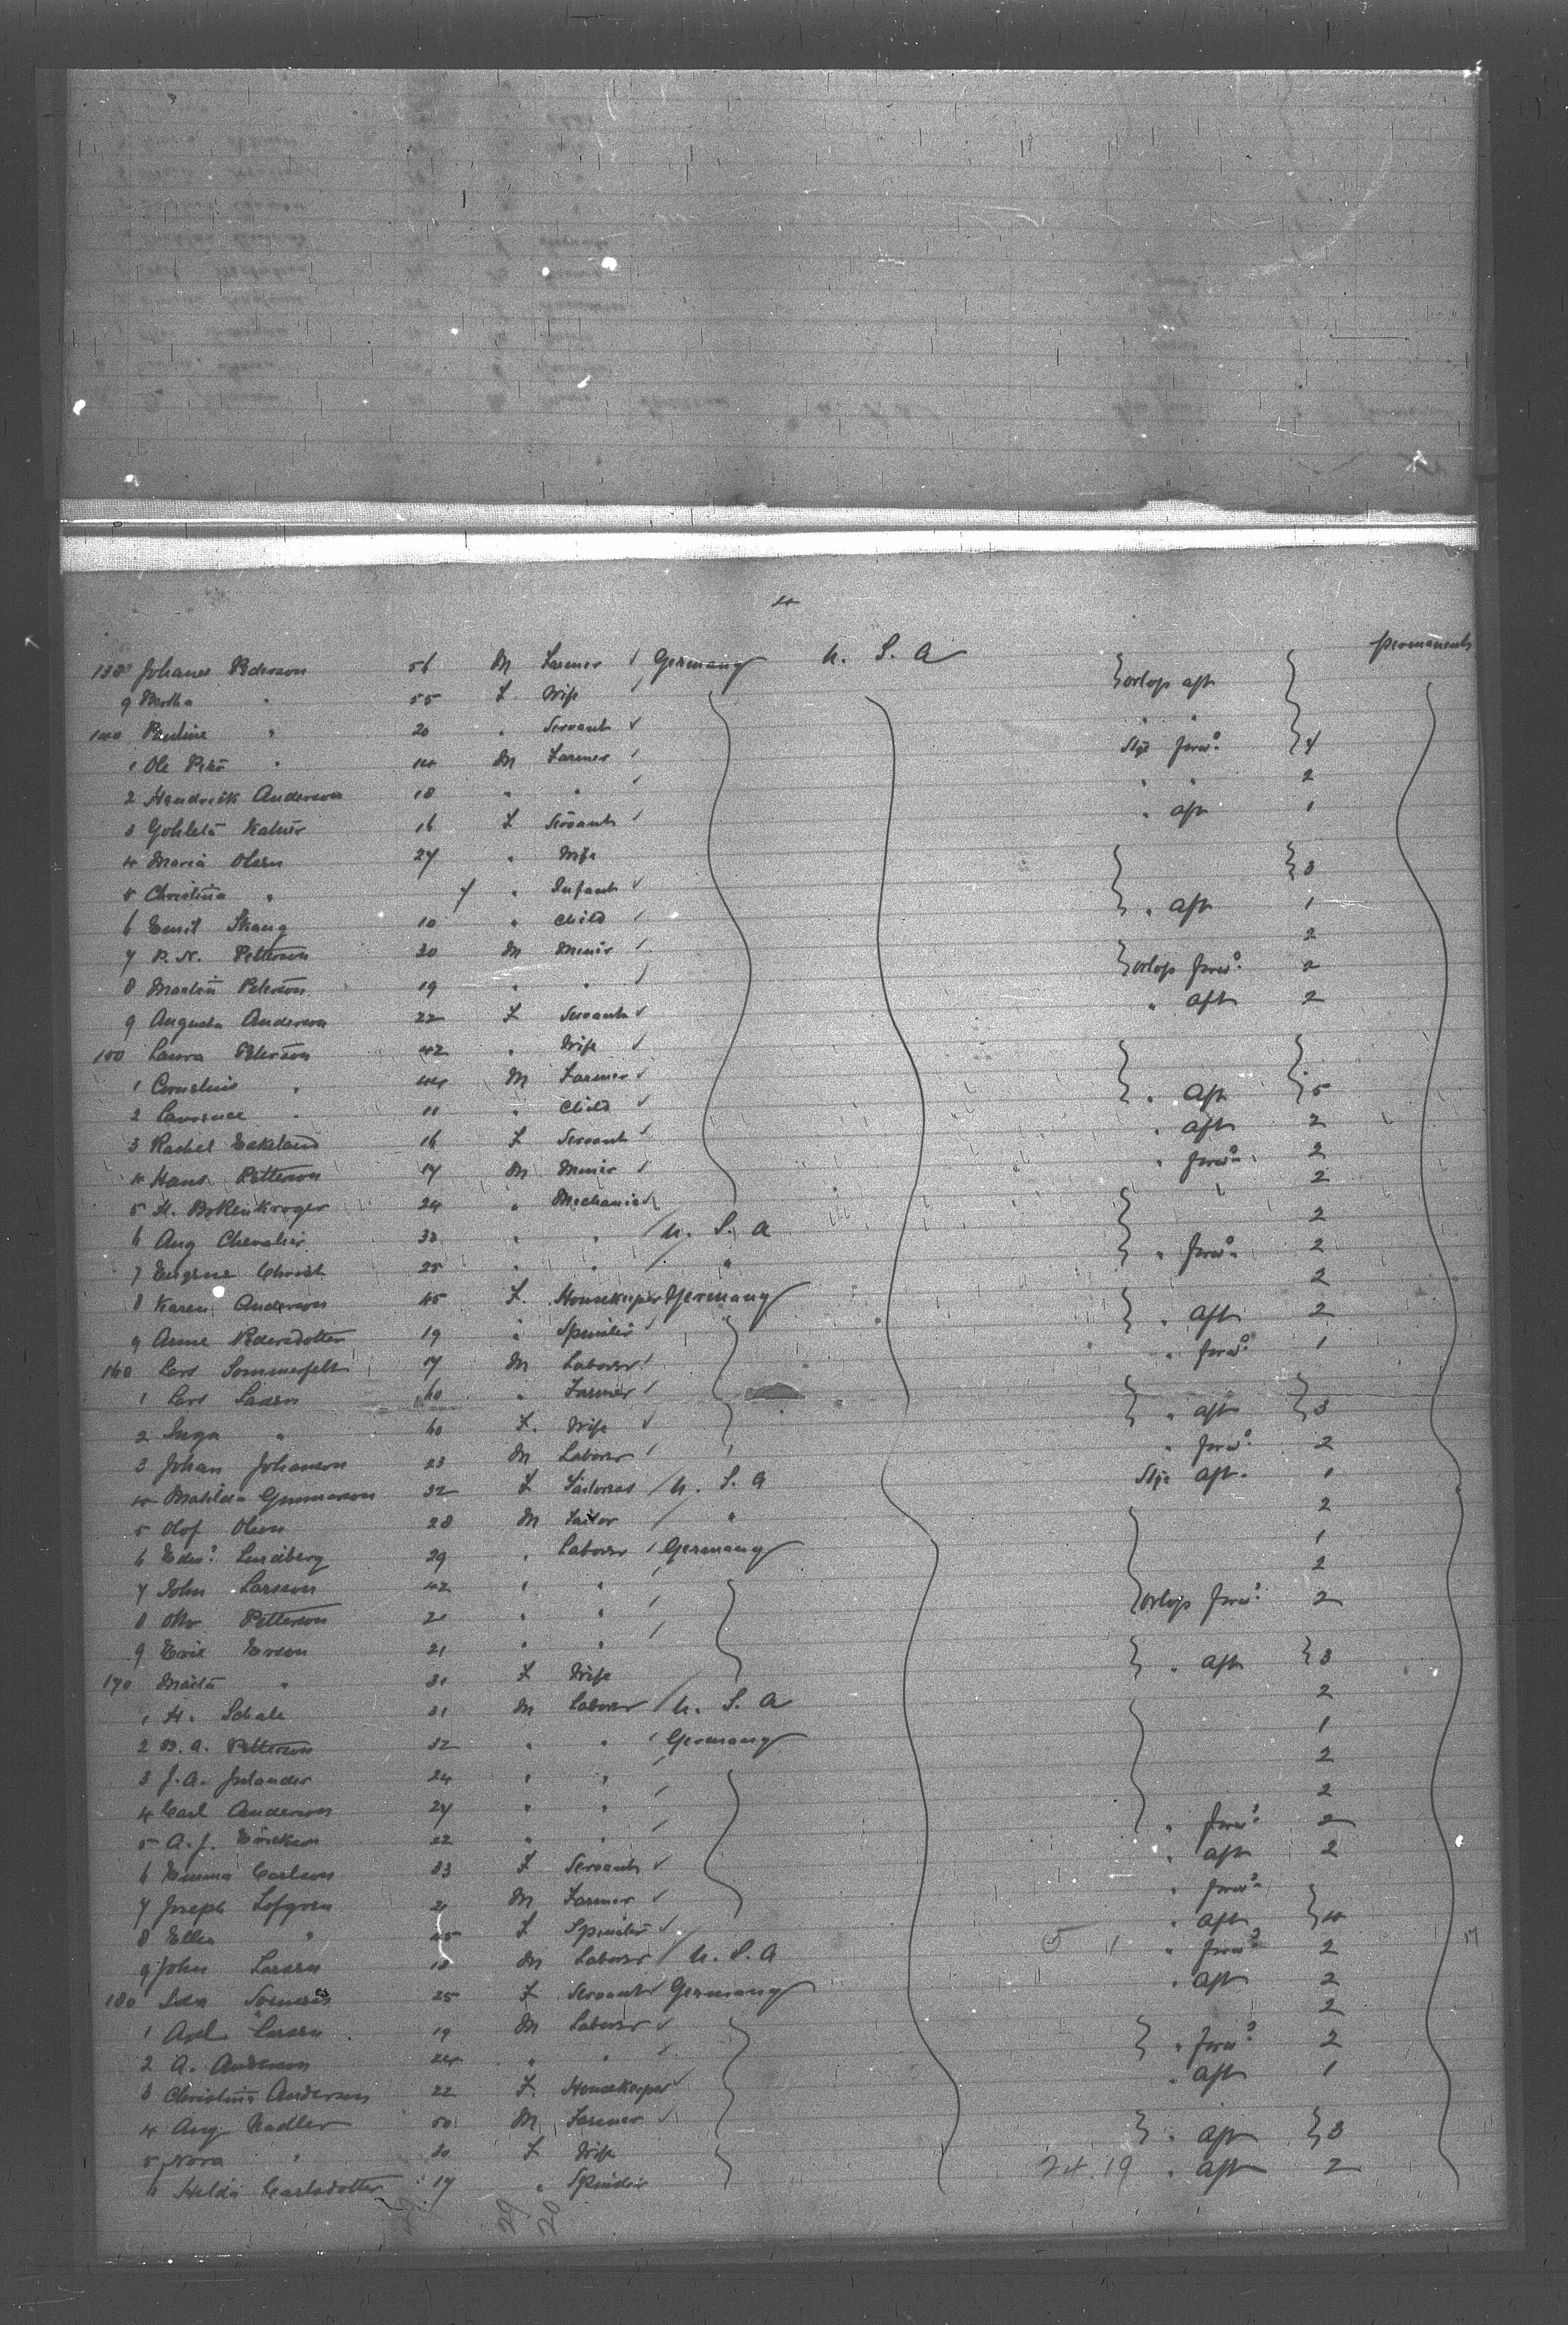 4
138 Johanes Pederson 56 M Farmer Germany U. S. A orlop aft permanently
9 Bertha " 55 F Wife
140 Pauline " 20 " Servant " "
1 Ole " 14 M Farmer Stge forwd. 4
2 Hendrick Anderson 18 " " " " 2
3 Katner 16 F Servant " aft 1
4 Maria Olsen 27 " Wife
5 Christina " 7 " Infant 3
6 Emil Skaug 10 " Child " aft 1
7 P. N. Petterson 30 M Miner 2
8 Martin Peterson 19 " " orlop forwd. 2
9 Augusta Anderson 22 F Servant " aft 2
150 Laura Peterson 42 " Wife
1 Cornelius " 44 M Farmer
2 Lawrence " 11 " Child " aft 5
3 Rachel Eekeland 16 F Servant " aft 2
4 Hans Petterson 17 M Miner " forwd. 2
5 H. 24 " Mechanic 2
6 Aug Chevalier 33 " " U. S. A 2
7 Eugene Christ 25 " " " " forwd. 2
8 Karen Anderson 45 F. Housekeeper Germany 2
9 Anne Pedersdotter 19 " Spinster " aft 2
160 Lars Sommerfelt 17 M Laborer " forwd. 1
1 Lars Larsen 60 " Farmer
2 Inga " 60 F. Wife " aft 3
3 Johan Johanson 23 M Laborer " forwd. 2
4 Matilda Gunnarson 32 F Tailoress U. S. A Stge aft. 1
5 Olof Olsen 28 M Tailor " 2
6 Edwd. Lindberg 29 " Laborer Germany 1
7 John Larsson 42 " " 2
8 Otto Petterson 21 " " orlop forwd. 2
9 Eric Erson 21 " "
170 " 31 F Wife " aft 3
1 H. Schale 31 M Laborer U. S. A 2
2 B. A. Petterson 32 " " Germany 1
3 J. A. 24 " " 2
4 Carl Anderson 27 " " 2
5 A. J. Erickson 22 " " " forwd. 2
6 Emma Carlson 33 F Servant " aft 2
7 Joseph Lofgren 21 M Farmer " forwd.
8 Ellen " 45 F Spinster " aft 4
9 John Larsen 18 M Laborer U. S. A 5 11 " forwd. 2
180 Ida 25 F Servant Germany " aft 2
1 Axel Larsen 19 M Laborer 2
2 A. Anderson 24 " " " forwd. 2
3 Christina Anderson 22 F. Housekeeper " aft 1
4 Aug Nadler 50 M Farmer
5 Nora " 30 F Wife " aft 3
6 Hilda Carlsdotter 17 " Spinster 24.19 " aft 2
29 20